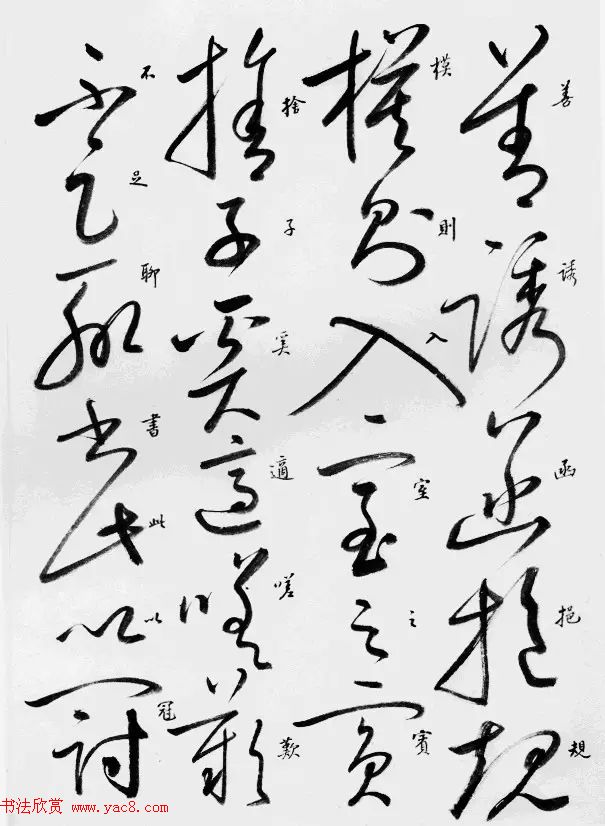 善诱函挹規
模則入室之賓
捨子奚適嗟歎
不足聊書此以冠
书法欣赏 www.yac8.com